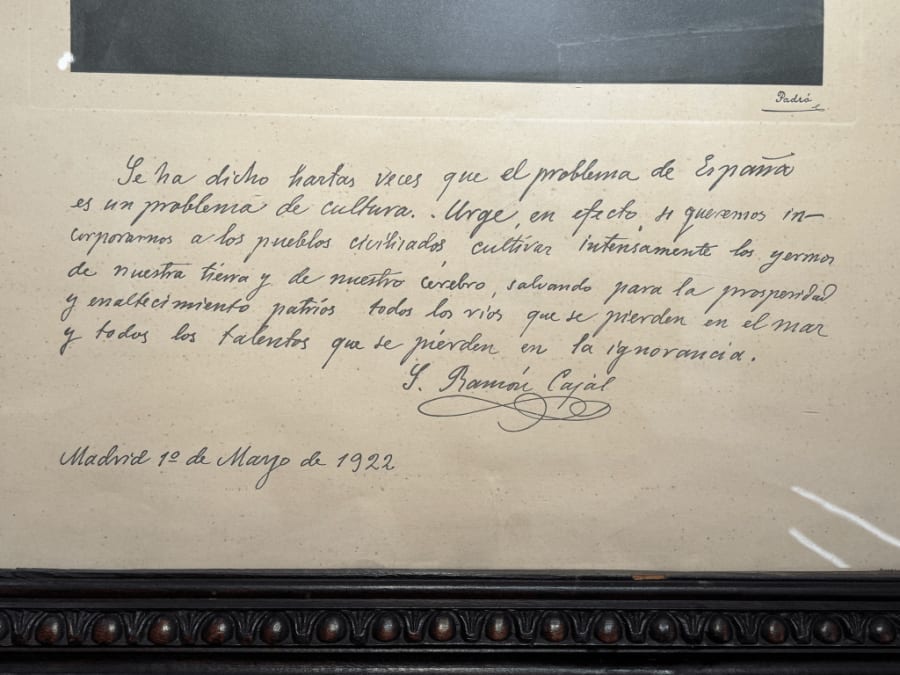 Padró
Se ha dicho hartas veces que el problema de España
es un problema de cultura. Urge, en efecto, si queremos in-
corporarnos a los pueblos civilizados, cultivar intensamente los yermos
de nuestra tierra y de nuestro cerebro, salvando para la prosperidad
y enaltecimiento patrios todos los ríos que se pierden en el mar
y todos los talentos que se pierden en la ignorancia.
S. Ramón Cajal
Madrid 1º de Mayo de 1922